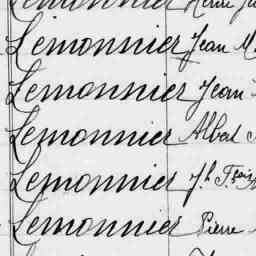 Lemonnier
Lemonnier Jean M.
Lemonnier Jean
Lemonnier Albert
Lemonnier J.h Fçois
Lemonnier Pierre